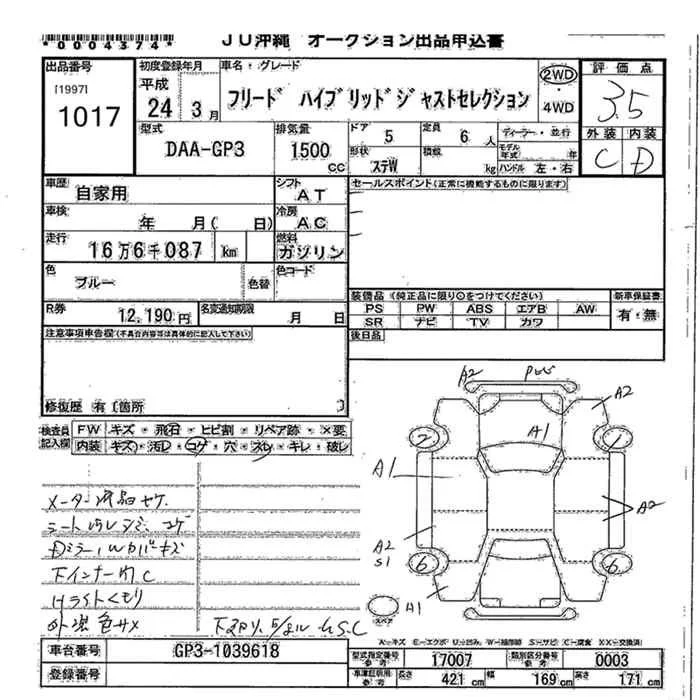 *0004374*
JU沖縄 オークション出品申込書
出品番号
[1997]
1017
初度登録年月
平成
24 3月
車名・グレード
フリード ハイブリッドジャストセレクション
2WD
4WD
評価点
3.5
外装 内装
C D
型式
DAA-GP3
排気量
1500
CC
ドア
5
定員
6 人
形状
ステW
積載
kg
ディーラー・並行
モデル年式 年
ハンドル 左・右
車歴
自家用
シフト
AT
セールスポイント(正常に機能するものに限ります)
車検
年 月( 日)
冷房
AC
走行
16万6千087 km
燃料
ガソリン
色
ブルー
色替
色コード
装備品(純正品に限り○をつけてください)
新車保証書
PS PW ABS エアB AW
SR ナビ TV カワ
有・無
R券
12,190円
名変通知期限
月 日
後日品
注意事項申告欄(不具合内容等は具体的に記入して下さい)
修復歴 有 [箇所 ]
検査員記入欄
FW キズ・飛石・ヒビ割・リペア跡・×要
内装 キズ・汚レ・コゲ・穴・スレ・キレ・破レ
メーター液晶ヤケ
シート汚レ
下インナー内C
Hライトくもり
外装色サメ
A2
A2
A1
2
A1
A2
A2
S1
6
6
A1
スペア
A=キズ E=エクボ U=凹み W=補修跡 S=サビ C=腐食 XX=交換済
車台番号
GP3-1039618
登録番号
型式指定番号
参考
17007
類別区分番号
参考
0003
車庫証明用
参考
長さ
421 cm
幅
169 cm
高さ
171 cm